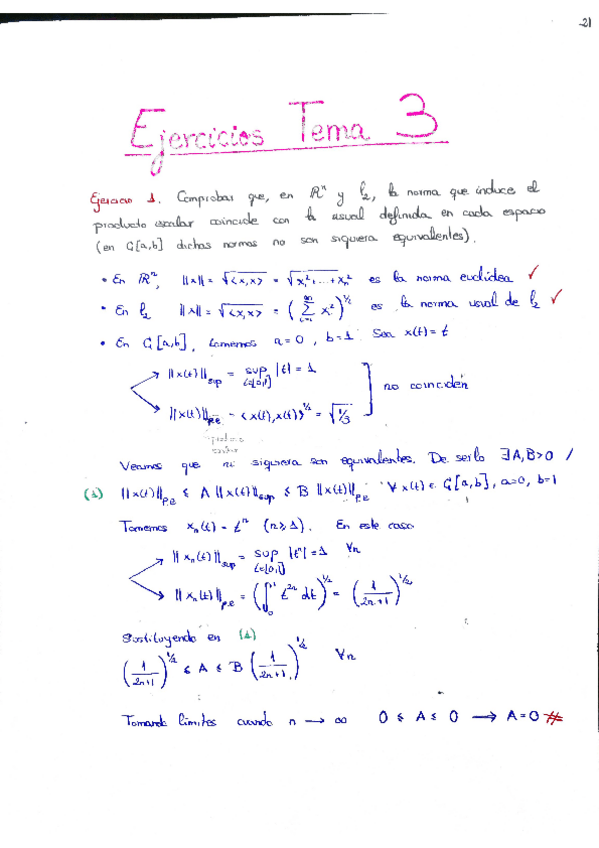 -21
Ejercicios Tema 3
Ejercicio 1. Comprobar que, en ℝⁿ y l₂, la norma que induce el
producto escalar coincide con la usual definida en cada espacio
(en C[a,b] dichas normas no son siquiera equivalentes).
• En ℝⁿ, ||x|| = √<x,x> = √x₁²+...+xₙ² es la norma euclídea ✓
• En l₂ ||x|| = √<x,x> = (∑ᵢ₌₁^∞ xᵢ²)^1/2 es la norma usual de l₂ ✓
• En C[a,b], tomemos a=0, b=1. Sea x(t)=t
||x(t)||sup = sup t∈[0,1] |t| = 1
no coinciden
||x(t)||p.e = <x(t),x(t)>^1/2 = √1/3
Veamos que ni siquiera son equivalentes. De serlo ∃A,B>0 /
(1) ||x(t)||p.e ≤ A ||x(t)||sup ≤ B ||x(t)||p.e ∀x(t)∈ C[a,b], a=0, b=1
Tomemos xₙ(t) = tⁿ (n≥1). En este caso
||xₙ(t)||sup = sup t∈[0,1] |tⁿ| = 1 ∀n
||xₙ(t)||p.e = (∫₀¹ t²ⁿ dt)^1/2 = (1/2n+1)^1/2
Sustituyendo en (1)
(1/2n+1)^1/2 ≤ A ≤ B (1/2n+1)^1/2 ∀n
Tomando límites cuando n → ∞ 0 ≤ A ≤ 0 → A=0 #